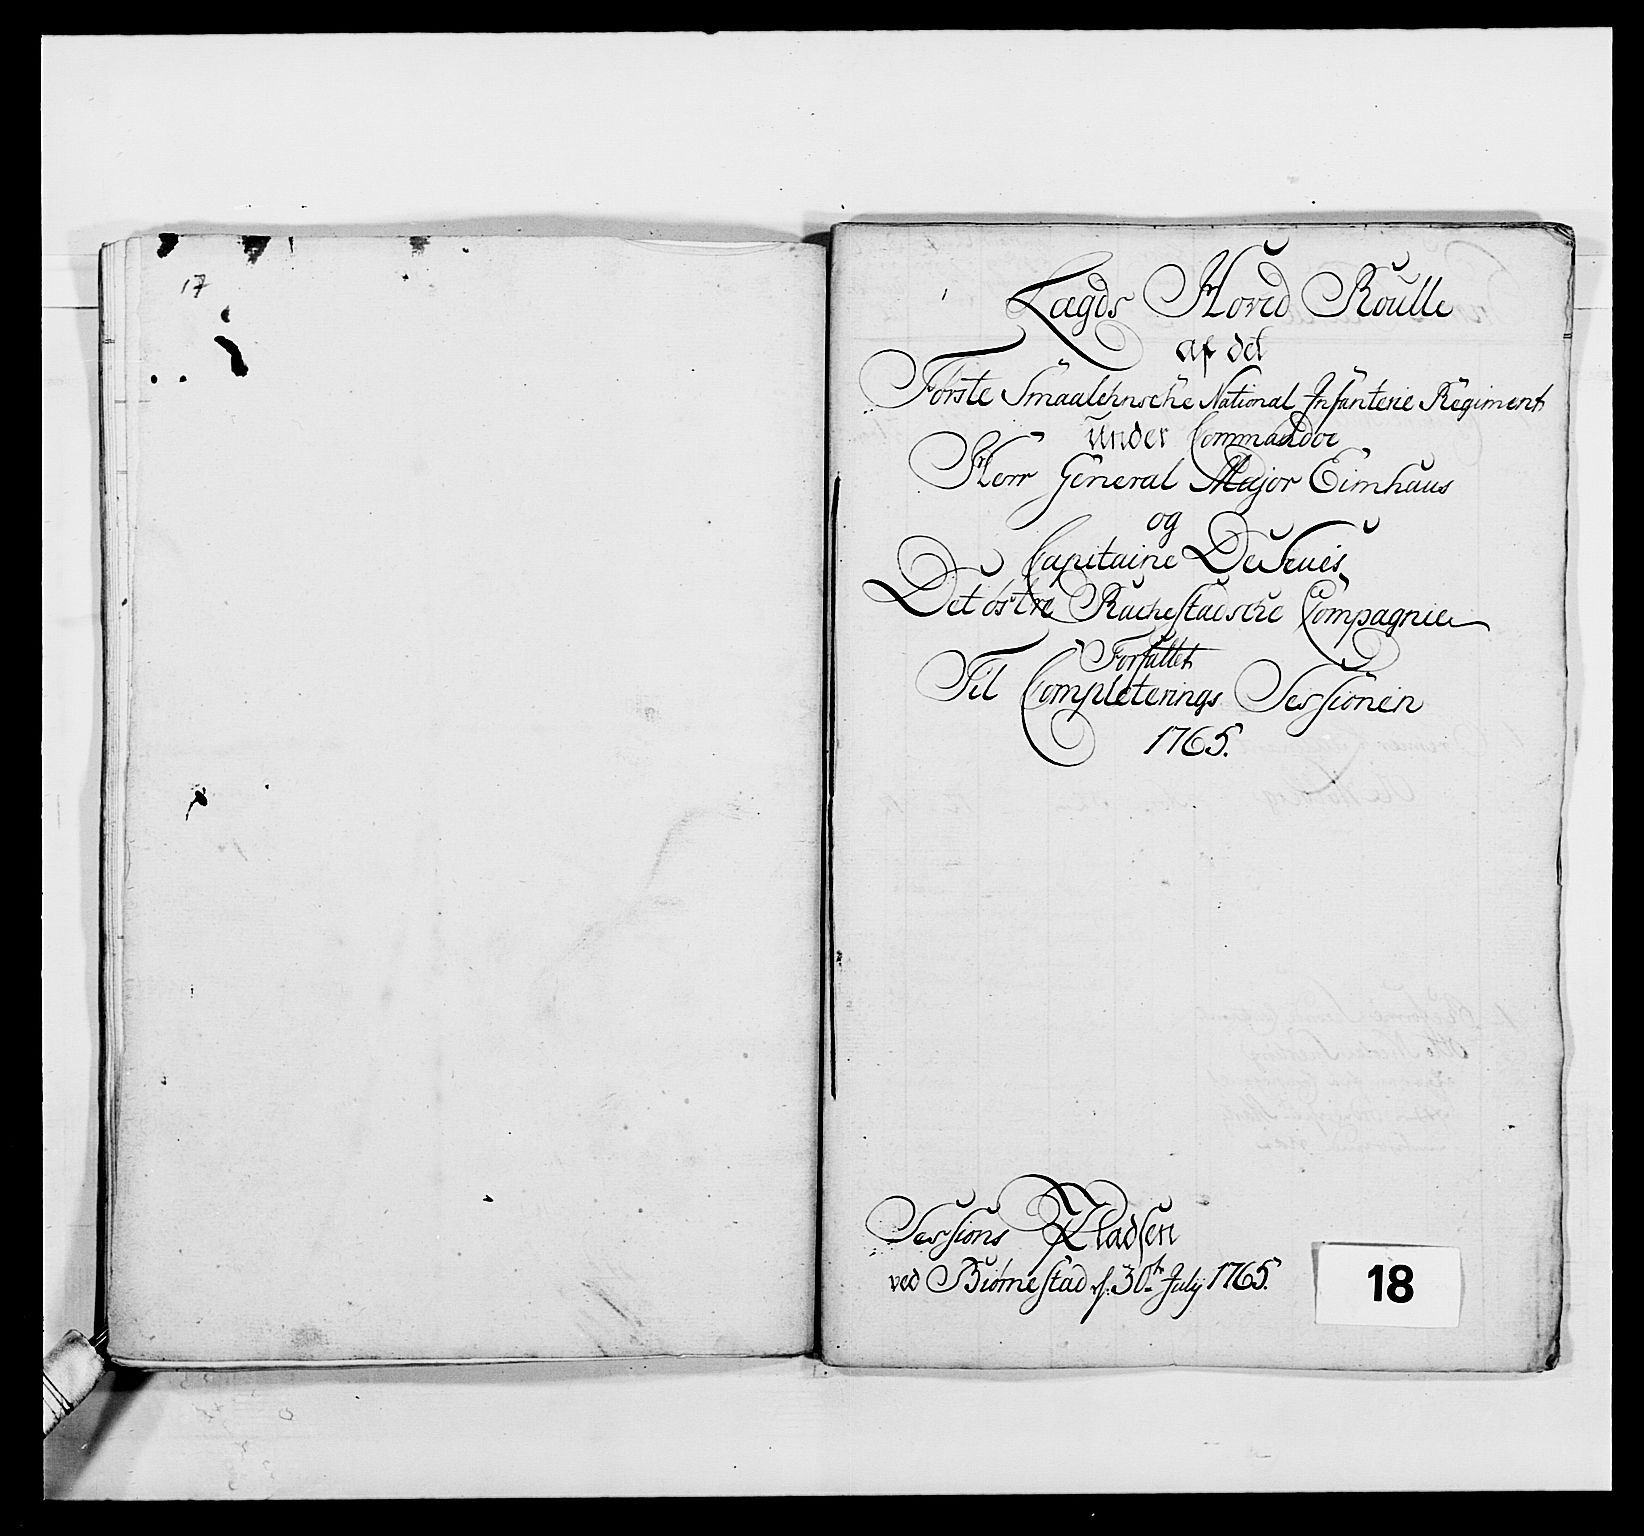 17
Lægds Hoved Roulle
af det
Förste Smaalehnsche National Infanterie Regiment
under Commando
Herr General Major Eimhaus
og
Capitaine
Det östre Rachestadsche Compagnie
Forfattet
Til Completerings Sessionen
1765.
Sessions Pladsen
ved Biörnestad d. 30te July 1765.
18